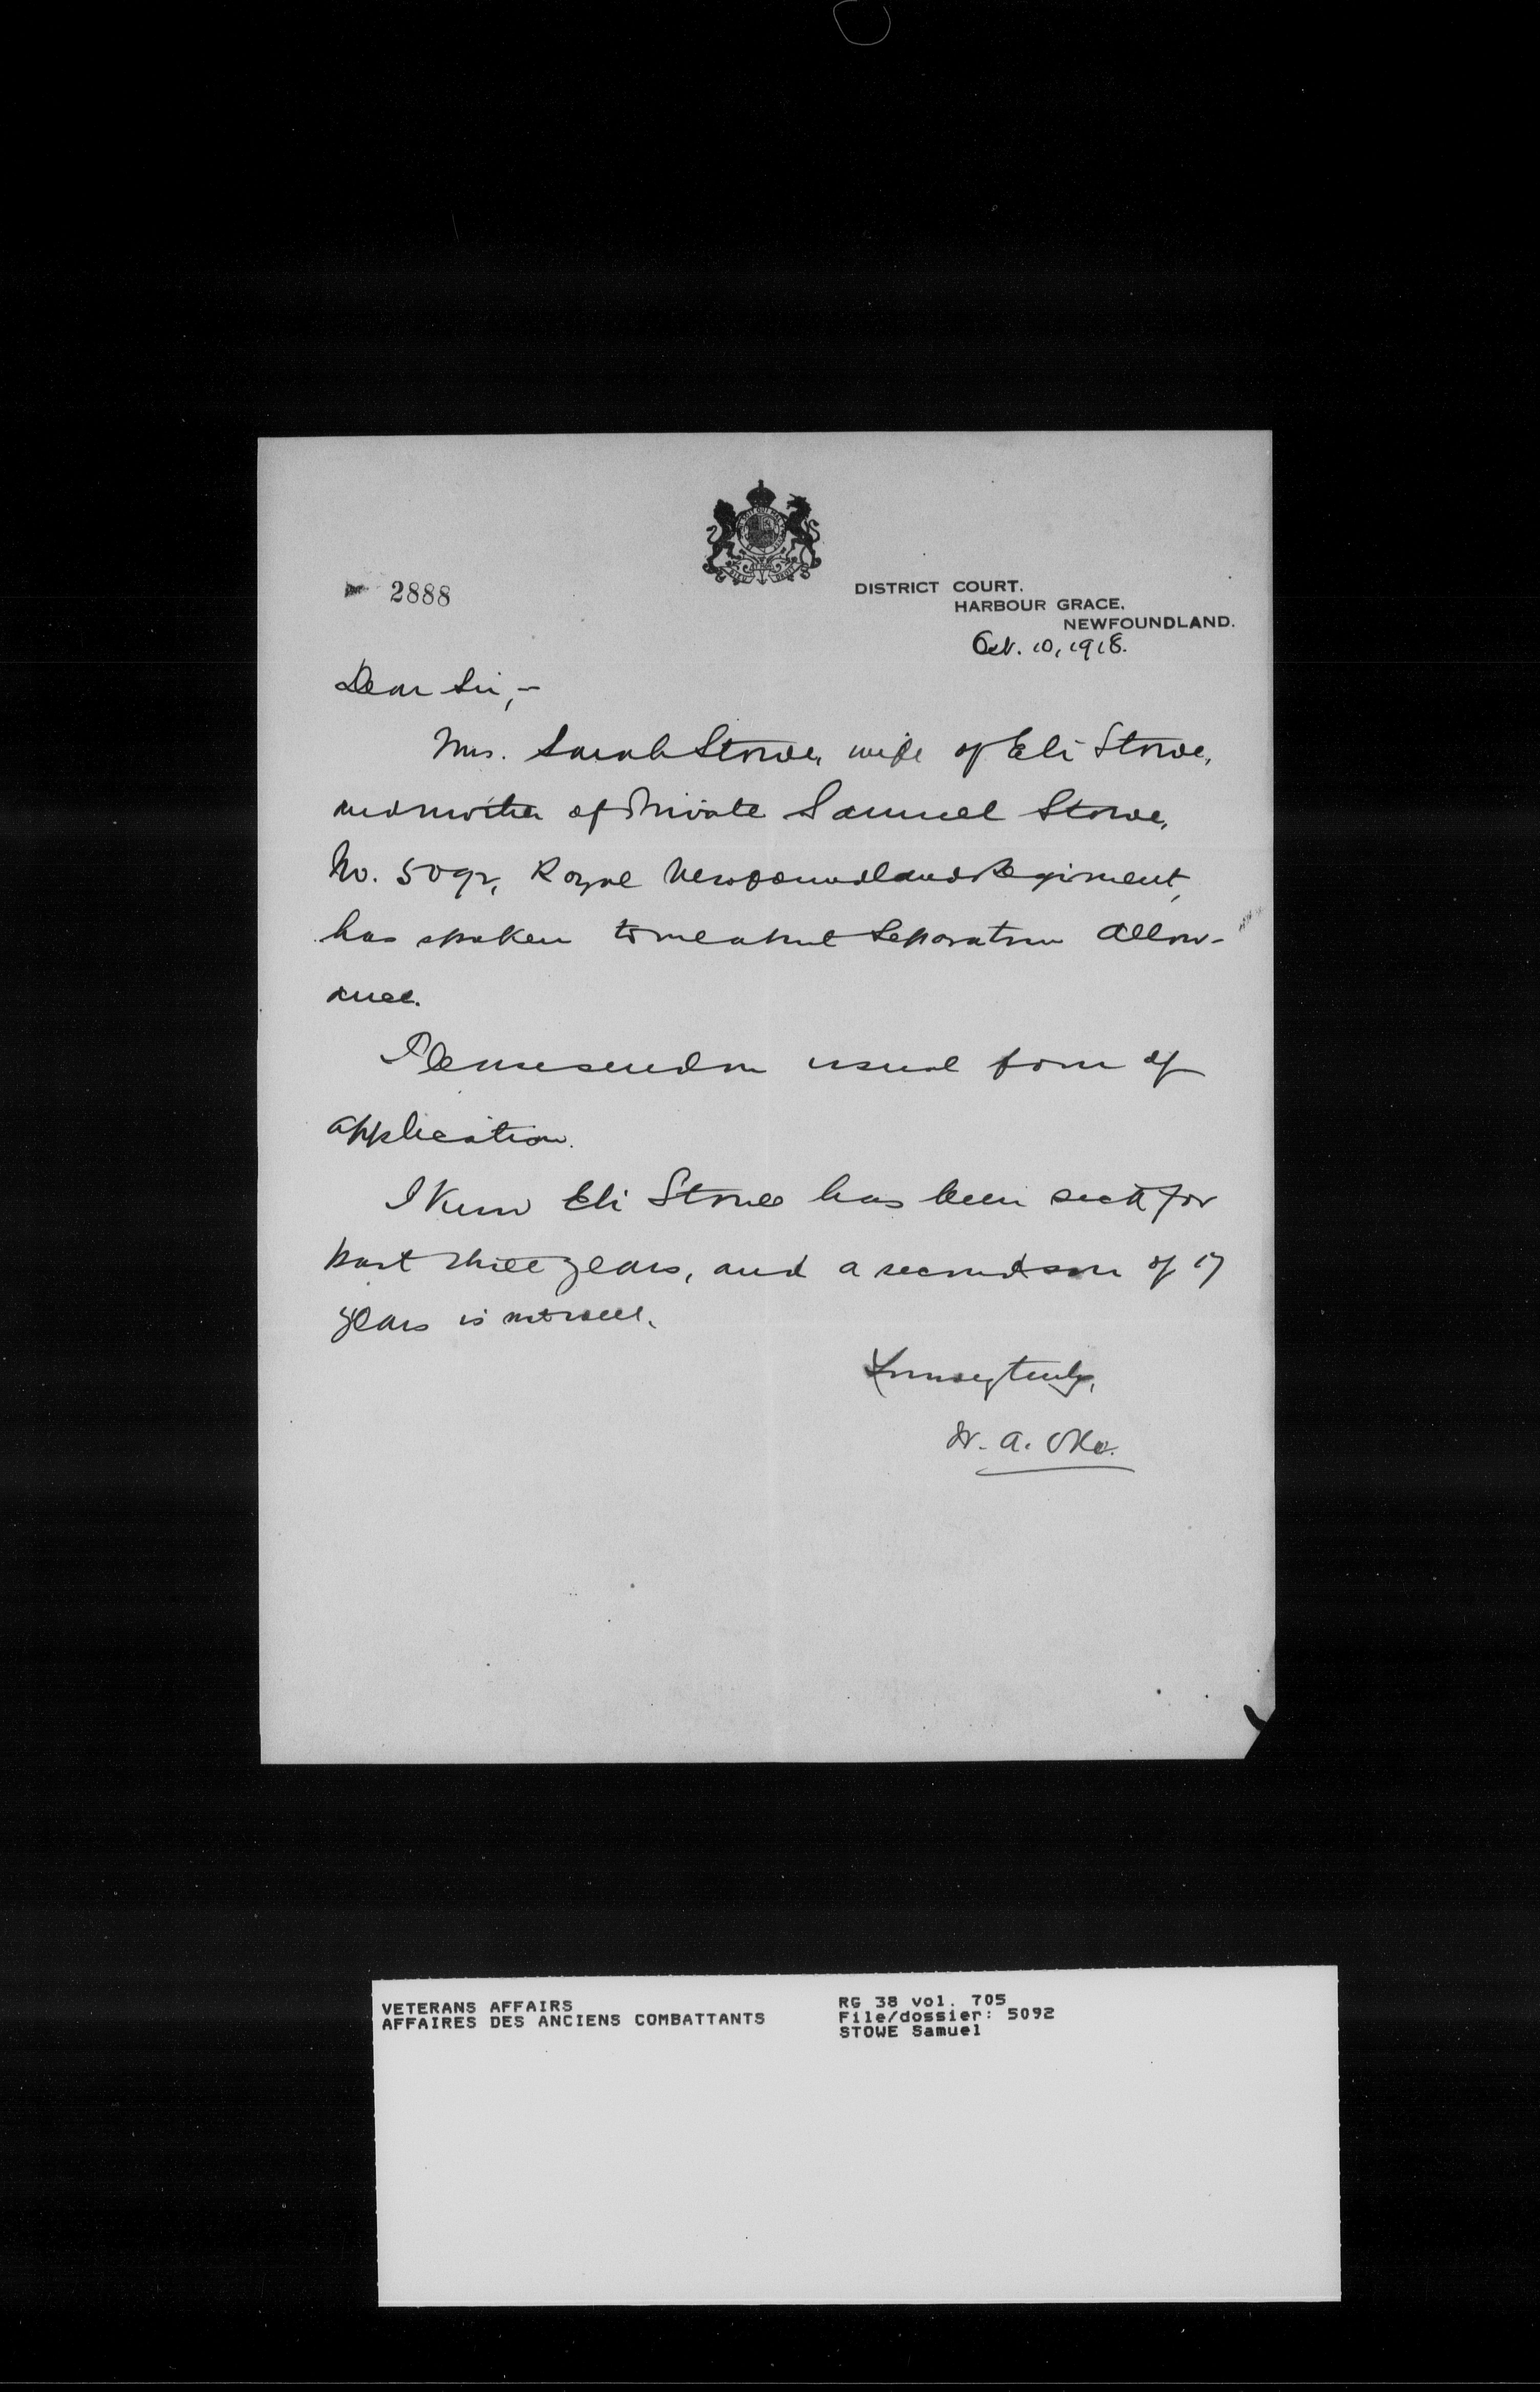 2888
DISTRICT COURT.
HARBOUR GRACE.
NEWFOUNDLAND.
Oct. 10, 1918.
Dear Sir,-
Mrs. Sarah Stowe, wife of Eli Stowe,
and mother of Private Samuel Stowe,
No. 5092, Royal Newfoundland Regiment,
has spoken to me about Separation Allow-
ance.
Please send me usual form of
application.
I know Eli Stowe has been sick for
past three years, and a second son of 17
years is not well.
Yours very truly,
A. Oke.
VETERANS AFFAIRS
AFFAIRES DES ANCIENS COMBATTANTS
RG 38 vol. 705
File/dossier: 5092
STOWE Samuel